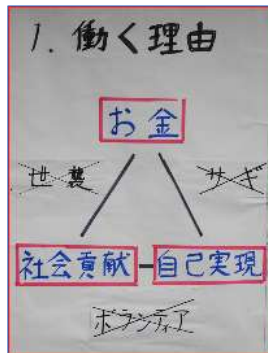 1. 働く理由
お金
世襲
サギ
社会貢献
自己実現
ボランティア